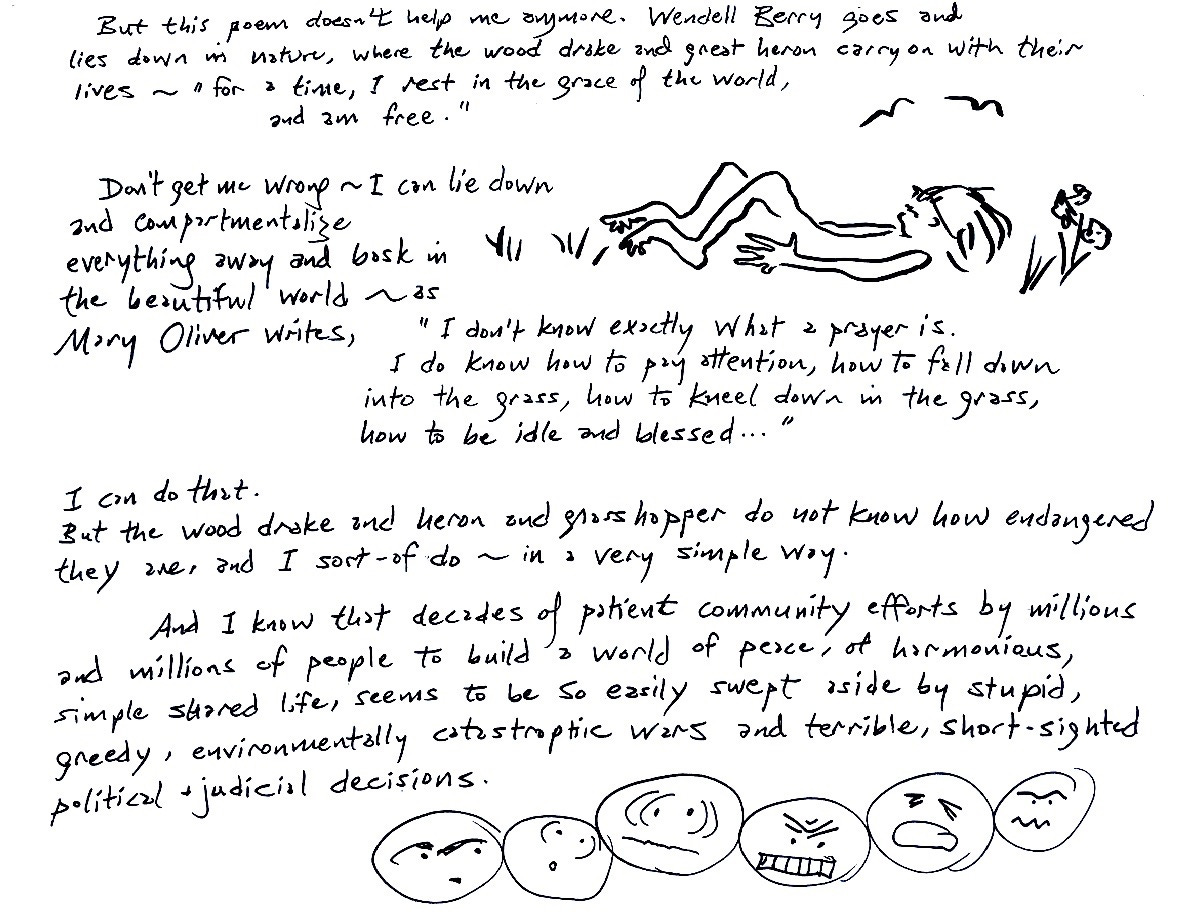 But this poem doesn't help me anymore. Wendell Berry goes and
lies down in nature, where the wood drake and great heron carry on with their
lives ~ "for a time, I rest in the grace of the world,
and am free."
Don't get me wrong ~ I can lie down
and compartmentalize
everything away and bask in
the beautiful world ~ as
Mary Oliver writes,
"I don't know exactly what a prayer is.
I do know how to pay attention, how to fall down
into the grass, how to kneel down in the grass,
how to be idle and blessed..."
I can do that.
But the wood drake and heron and grasshopper do not know how endangered
they are, and I sort-of do ~ in a very simple way.
And I know that decades of patient community efforts by millions
and millions of people to build a world of peace, of harmonious,
simple shared life, seems to be so easily swept aside by stupid,
greedy, environmentally catastrophic wars and terrible, short-sighted
political + judicial decisions.